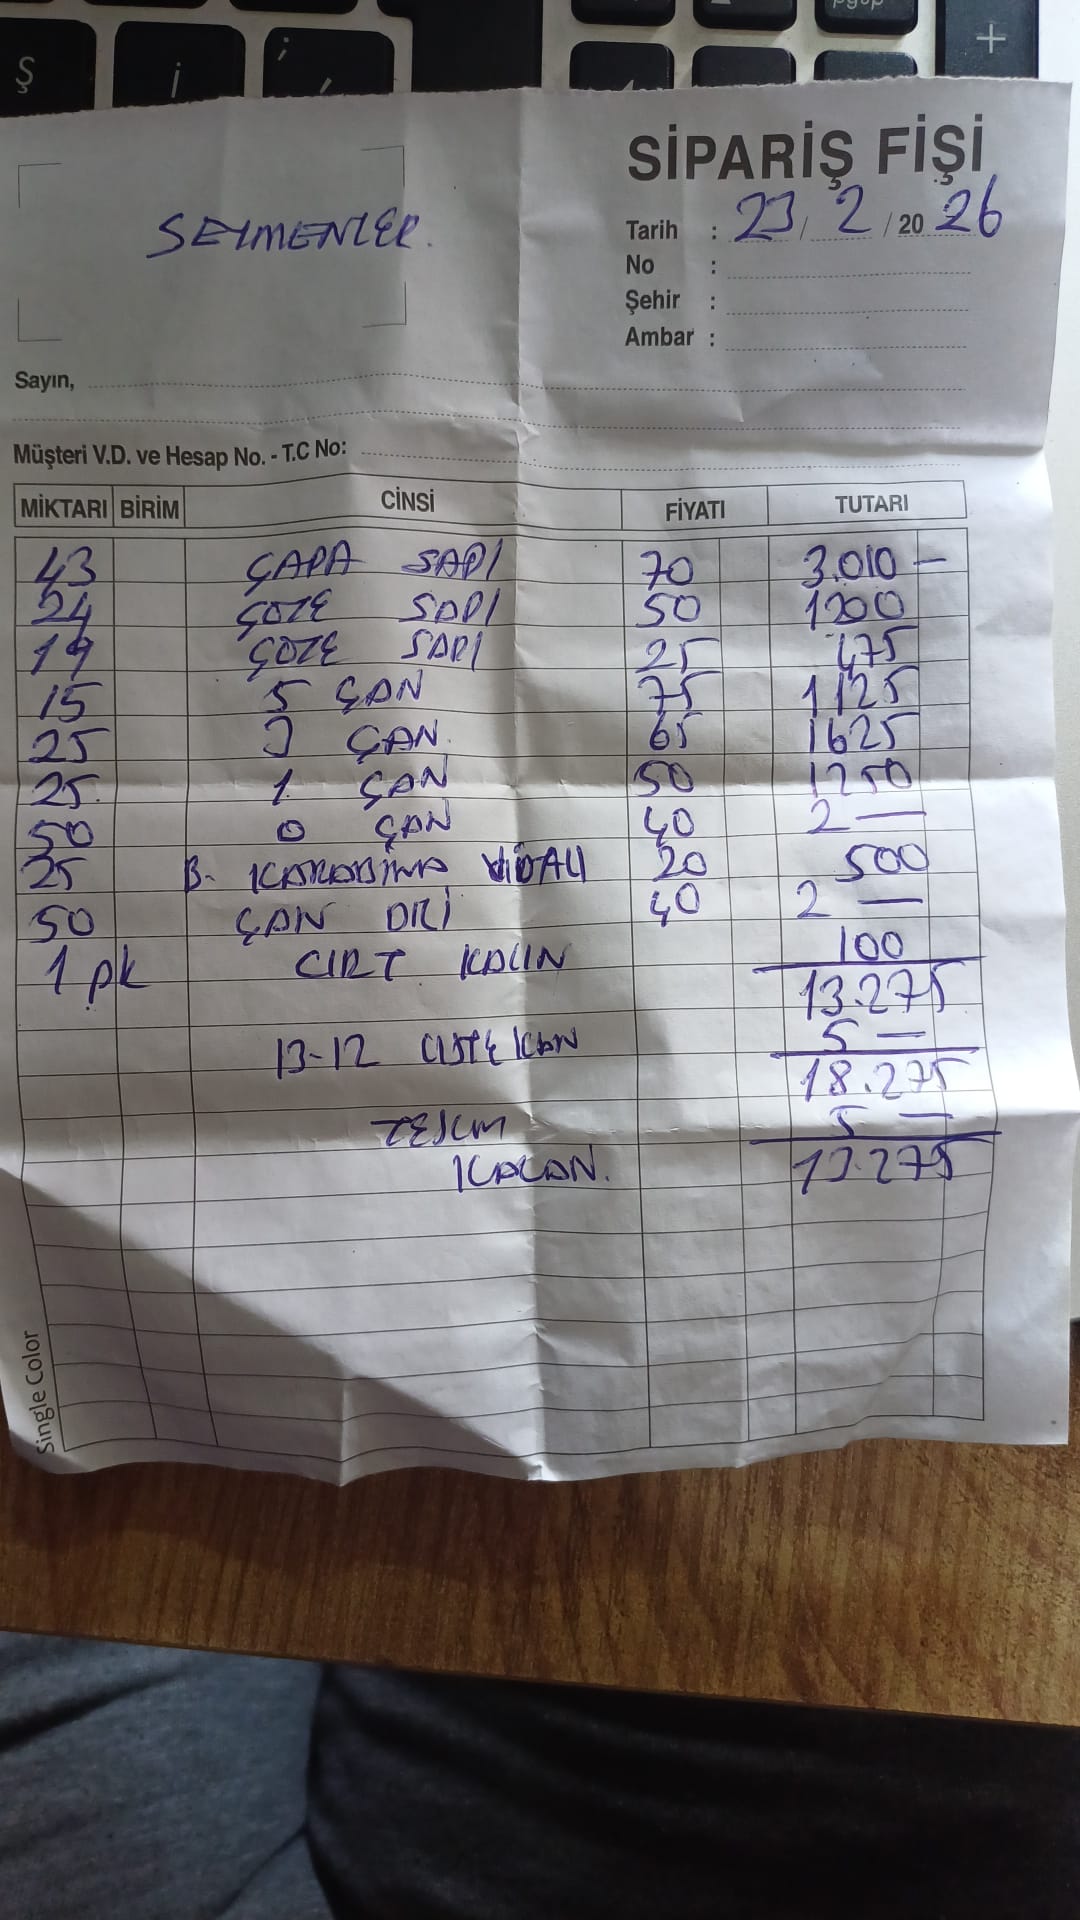 Ş
İ
;
,
pgup
+
SİPARİŞ FİŞİ
SEYMENLER.
Tarih : 23 / 2 / 20 26
No :
Şehir :
Ambar :
Sayın,
Müşteri V.D. ve Hesap No. - T.C No:
MİKTARI BİRİM CİNSİ FİYATI TUTARI
43 ÇAPA SAPI 70 3.010 —
24 ÇOTE SAPI 50 1200
19 ÇOTE SAPI 25 475
15 5 ÇAN 75 1125
25 3 ÇAN. 65 1625
25. 1 ÇAN 50 1250
50 0 ÇAN 40 2 —
25 B. KARABİNA VİDALI 20 500
50 ÇAN DİLİ 40 2 —
1 pk CIRT KALIN 100
13.275
13-12 5 —
18.275
5 —
KALAN. 13.275
Single Color